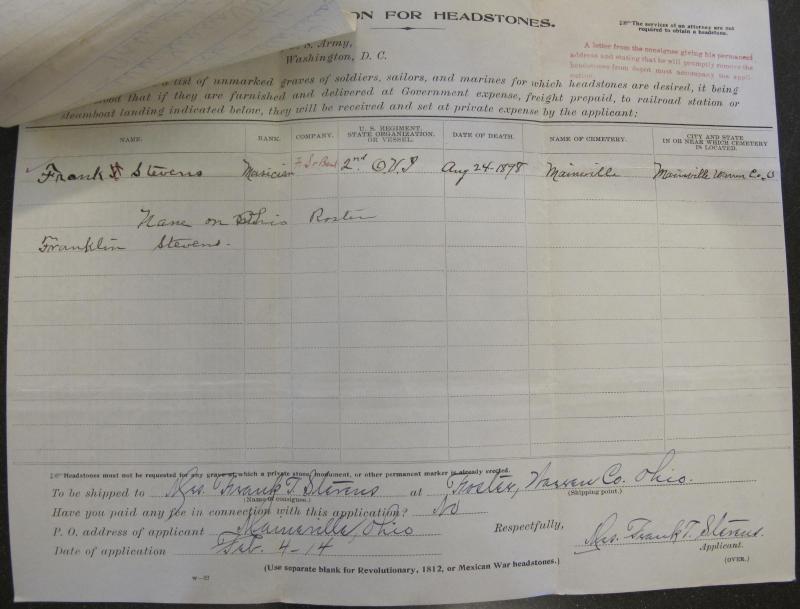 ON FOR HEADSTONES.
☞ The services of an attorney are not
required to obtain a headstone.
S. Army,
Washington, D. C.
A letter from the consignee giving his permanent
address and stating that he will promptly remove the
headstones from depot must accompany the appli-
cation.
a list of unmarked graves of soldiers, sailors, and marines for which headstones are desired, it being
ood that if they are furnished and delivered at Government expense, freight prepaid, to railroad station or
steamboat landing indicated below, they will be received and set at private expense by the applicant:
NAME. RANK. COMPANY. U. S. REGIMENT, STATE ORGANIZATION, OR VESSEL. DATE OF DEATH. NAME OF CEMETERY. CITY AND STATE IN OR NEAR WHICH CEMETERY IS LOCATED.
Frank T Stevens Musician 2nd O.V.I Aug 24-1898 Maineville Maineville Warren Co., O
Name on Ohio Roster
Franklin Stevens.
☞ Headstones must not be requested for any grave at which a private stone, monument, or other permanent marker is already erected.
To be shipped to Mrs. Frank T. Stevens at Foster, Warren Co. Ohio.
(Name of consignee.) (Shipping point.)
Have you paid any fee in connection with this application? No
P. O. address of applicant Maineville, Ohio Respectfully,
Date of application Feb. 4-14 Mrs. Frank T. Stevens.
Applicant.
(OVER.)
(Use separate blank for Revolutionary, 1812, or Mexican War headstones.)